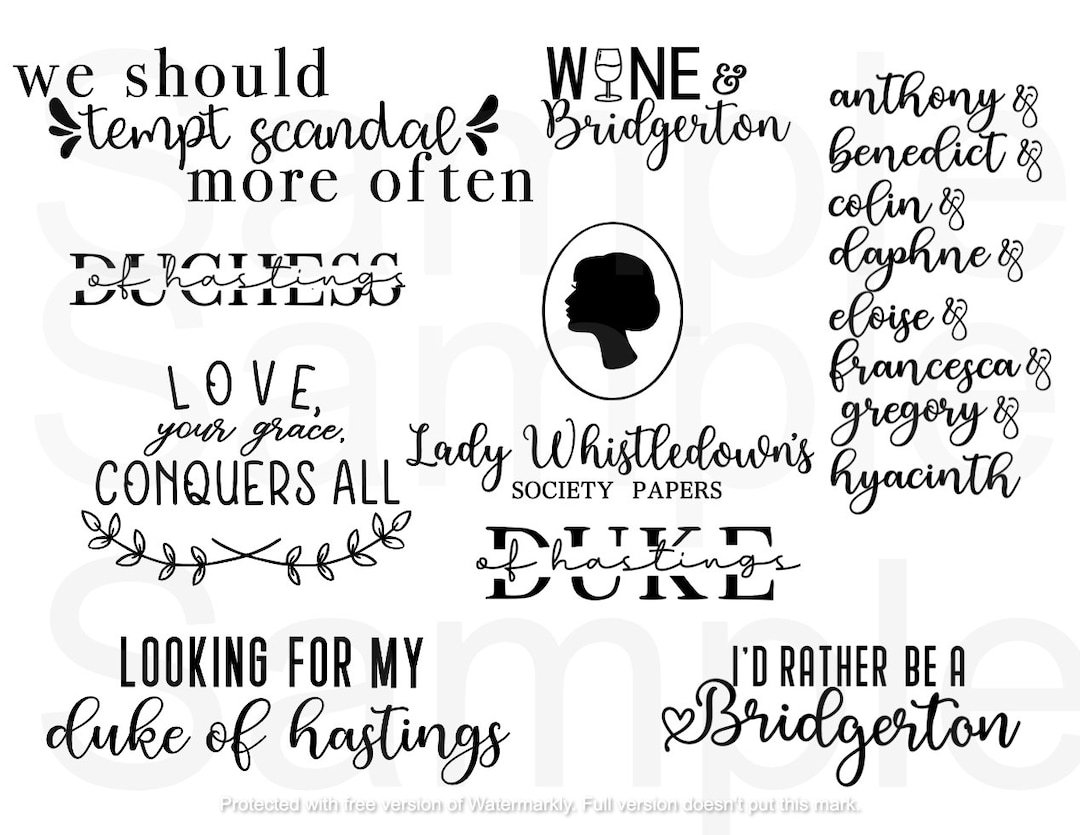 we should
tempt scandal
more often
WINE &
Bridgerton
anthony &
benedict &
colin &
daphne &
eloise &
francesca &
gregory &
hyacinth
DUCHESS
of hastings
LOVE,
your grace,
CONQUERS ALL
Lady Whistledown's
SOCIETY PAPERS
DUKE
of hastings
LOOKING FOR MY
duke of hastings
I'D RATHER BE A
Bridgerton
Sample
Sample
Sample
Protected with free version of Watermarkly. Full version doesn't put this mark.